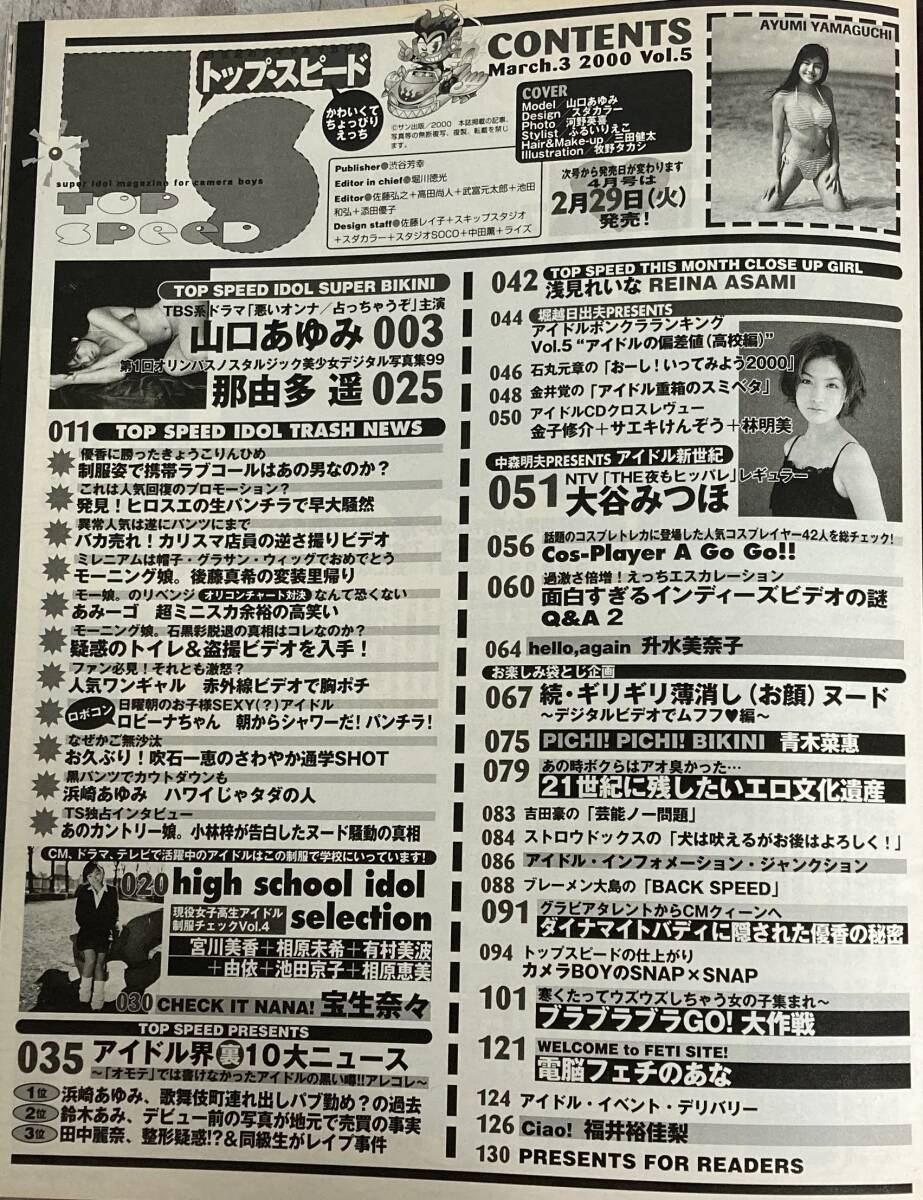 TS
トップ・スピード
かわいくて
ちょっぴり
えっち
super idol magazine for camera boys
TOP
SPEED
©サン出版/2000 本誌掲載の記事、
写真等の無断複写、複製、転載を禁じ
ます。
CONTENTS
March.3 2000 Vol.5
Publisher●渋谷芳幸
Editor in chief●堀川徳光
Editor●佐藤弘之+高田尚人+武富元太郎+池田
和弘+添田優子
Design staff●佐藤レイ子+スキップスタジオ
+スダカラー+スタジオSOCO+中田薫+ライズ
COVER
Model/山口あゆみ
Design/スダカラー
Photo/河野英喜
Stylist/ふるいりえこ
Hair&Make-up/三田健太
Illustration/牧野タカシ
次号から発売日が変わります
4月号は
2月29日(火)
発売!
AYUMI YAMAGUCHI
TOP SPEED IDOL SUPER BIKINI
TBS系ドラマ「悪いオンナ/占っちゃうぞ」主演
山口あゆみ 003
第1回オリンパスノスタルジック美少女デジタル写真集99
那由多 遥 025
011 TOP SPEED IDOL TRASH NEWS
優香に勝ったきょうこりんひめ
制服姿で携帯ラブコールはあの男なのか?
これは人気回復のプロモーション?
発見!ヒロスエの生パンチラで早大騒然
異常人気は遂にパンツにまで
バカ売れ!カリスマ店員の逆さ撮りビデオ
ミレニアムは帽子・グラサン・ウィッグでおめでとう
モーニング娘。後藤真希の変装里帰り
モー娘。のリベンジ オリコンチャート対決 なんて恐くない
あみーゴ 超ミニスカ余裕の高笑い
モーニング娘。石黒彩脱退の真相はコレなのか?
疑惑のトイレ&盗撮ビデオを入手!
ファン必見!それとも激怒?
人気ワンギャル 赤外線ビデオで胸ポチ
ロボコン 日曜朝のお子様SEXY(?)アイドル
ロビーナちゃん 朝からシャワーだ!パンチラ!
なぜかご無沙汰
お久ぶり!吹石一恵のさわやか通学SHOT
黒パンツでカウトダウンも
浜崎あゆみ ハワイじゃタダの人
TS独占インタビュー
あのカントリー娘。小林梓が告白したヌード騒動の真相
CM、ドラマ、テレビで活躍中のアイドルはこの制服で学校にいっています!
020 high school idol
selection
現役女子高生アイドル
制服チェックVol.4
宮川美香+相原未希+有村美波
+由依+池田京子+相原恵美
030 CHECK IT NANA! 宝生奈々
TOP SPEED PRESENTS
035 アイドル界裏10大ニュース
~「オモテ」では書けなかったアイドルの黒い噂!!アレコレ~
1位 浜崎あゆみ、歌舞伎町連れ出しパブ勤め?の過去
2位 鈴木あみ、デビュー前の写真が地元で売買の事実
3位 田中麗奈、整形疑惑!?&同級生がレイプ事件
TOP SPEED THIS MONTH CLOSE UP GIRL
042 浅見れいな REINA ASAMI
堀越日出夫PRESENTS
044 アイドルボンクラランキング
Vol.5 "アイドルの偏差値(高校編)"
046 石丸元章の「おーし!いってみよう2000」
048 金井覚の「アイドル重箱のスミベタ」
050 アイドルCDクロスレヴュー
金子修介+サエキけんぞう+林明美
中森明夫PRESENTS アイドル新世紀
NTV「THE夜もヒッパレ」レギュラー
051 大谷みつほ
話題のコスプレトレカに登場した人気コスプレイヤー42人を総チェック!
056 Cos-Player A Go Go!!
過激さ倍増!えっちエスカレーション
060 面白すぎるインディーズビデオの謎
Q&A 2
064 hello,again 升水美奈子
お楽しみ袋とじ企画
067 続・ギリギリ薄消し(お顔)ヌード
~デジタルビデオでムフフ♥編~
075 PICHI! PICHI! BIKINI 青木菜恵
079 あの時ボクらはアオ臭かった…
21世紀に残したいエロ文化遺産
083 吉田豪の「芸能ノー問題」
084 ストロウドックスの「犬は吠えるがお後はよろしく!」
086 アイドル・インフォメーション・ジャンクション
088 ブレーメン大島の「BACK SPEED」
091 グラビアタレントからCMクィーンへ
ダイナマイトバディに隠された優香の秘密
094 トップスピードの仕上がり
カメラBOYのSNAP×SNAP
101 寒くたってウズウズしちゃう女の子集まれ~
ブラブラブラGO! 大作戦
121 WELCOME to FETI SITE!
電脳フェチのあな
124 アイドル・イベント・デリバリー
126 Ciao! 福井裕佳梨
130 PRESENTS FOR READERS